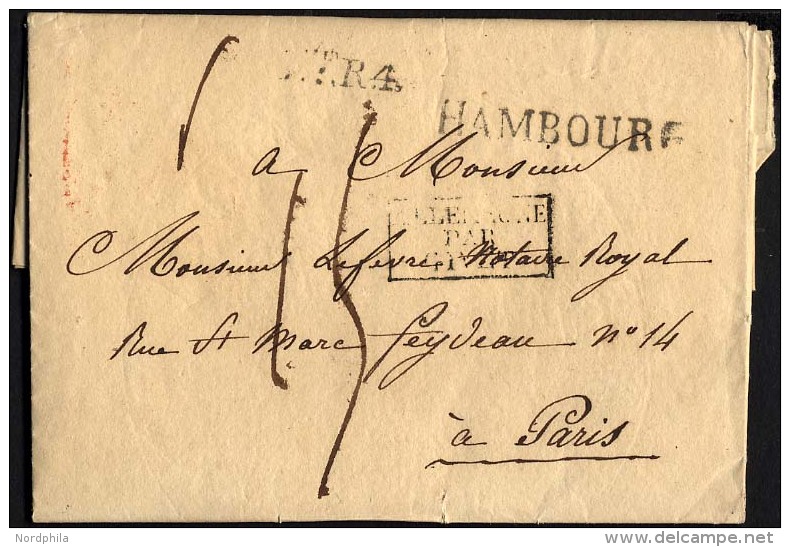 R4
HAMBOURG
a Monsieur
ALLEMAGNE
PAR
GIVET
Monsieur Lefevre, Notaire Royal
Rue St Marc feydeau no 14
à Paris
Nordphila
delcampe.net